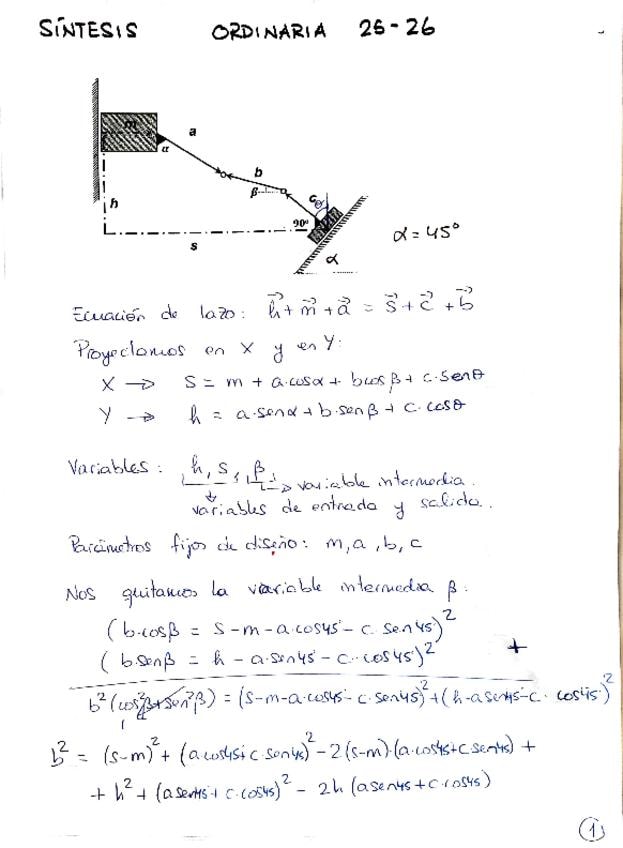 SÍNTESIS ORDINARIA 25-26
m
a
α
b
β
h
c
θ
90º
s
α
α = 45º
Ecuación de lazo: h⃗ + m⃗ + a⃗ = s⃗ + c⃗ + b⃗
Proyectamos en X y en Y:
X → S = m + a·cosα + b cosβ + c·senθ
Y → h = a·senα + b·senβ + c·cosθ
Variables: h, s, β → variable intermedia.
variables de entrada y salida.
Parámetros fijos de diseño: m, a, b, c
Nos quitamos la variable intermedia β:
(b·cosβ = S - m - a·cos45 - c·sen45)²
(b·senβ = h - a·sen45 - c·cos45)² +
b²(cos²β + sen²β) = (s-m-a·cos45 - c·sen45)² + (h-a sen45-c· cos45)²
1
b² = (s-m)² + (a·cos45+c·sen45)² - 2(s-m)·(a·cos45+c sen45) +
+ h² + (a sen45 + c·cos45)² - 2h (a sen45 + c·cos45)
1